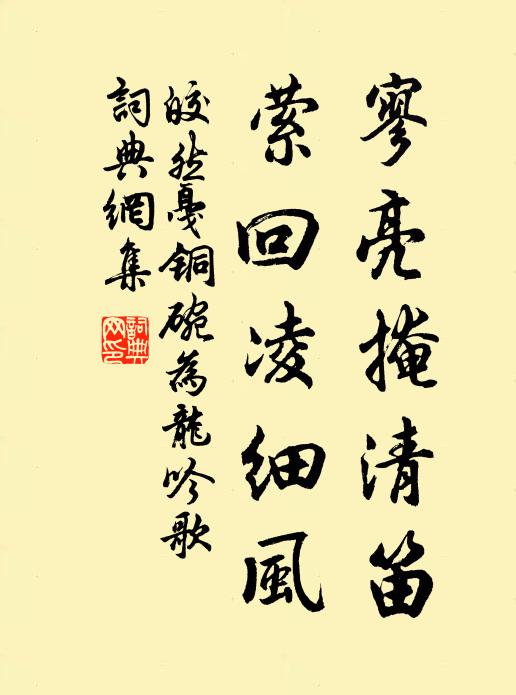 寥亮掩清笛
萦回凌细風
皎然戛銅碗為龍吟歌
詞典網集
詞典网印